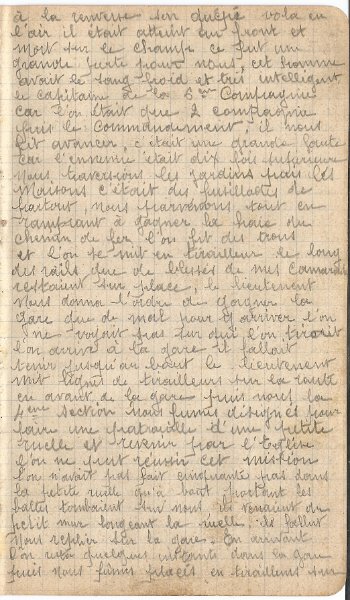 à la renverse son
l'air il était atteint au front et
mort sur le champs ce fut une
grande perte pour nous, cet homme
avait le sang-froid et très intelligent
le capitaine de la 5ème Compagnie
car l'on était que 2 compagnie
pris le commandement, il nous
fit avancer, c'était une grande faute
car l'ennemie était dix fois supérieure
nous traversons les jardins puis les
maisons c'était des fusillades de
partout, nous parvenons tout en
rampant à gagner la haie du
chemin de fer l'on fit des trous
et l'on se mit en tirailleur le long
des rails que de blessés de mes camarades
restaient sur place, le lieutenant
nous donna l'ordre de gagner la
gare que de mal pour y arriver l'on
ne voyait pas sur qui l'on tirait
l'on arrive à la gare il fallait
tenir jusqu'au bout le lieutenant
mit lignes de tirailleurs sur la route
en avant de la gare puis nous la
4ème section nous fumes désignés pour
faire une patrouille d'une petite
ruelle et revenir par l'Eglise
l'on ne put réussir cet mission
l'on n'avait pas fait cinquante pas dans
la petite ruelle qu'à bout portant les
balles tombaient sur nous ils venaient du
petit mur longeant la ruelle il fallut
nous replier sur la gare. En arrivant
l'on resta quelques instants dans la gare
puis nous fumes placés en tirailleurs sur